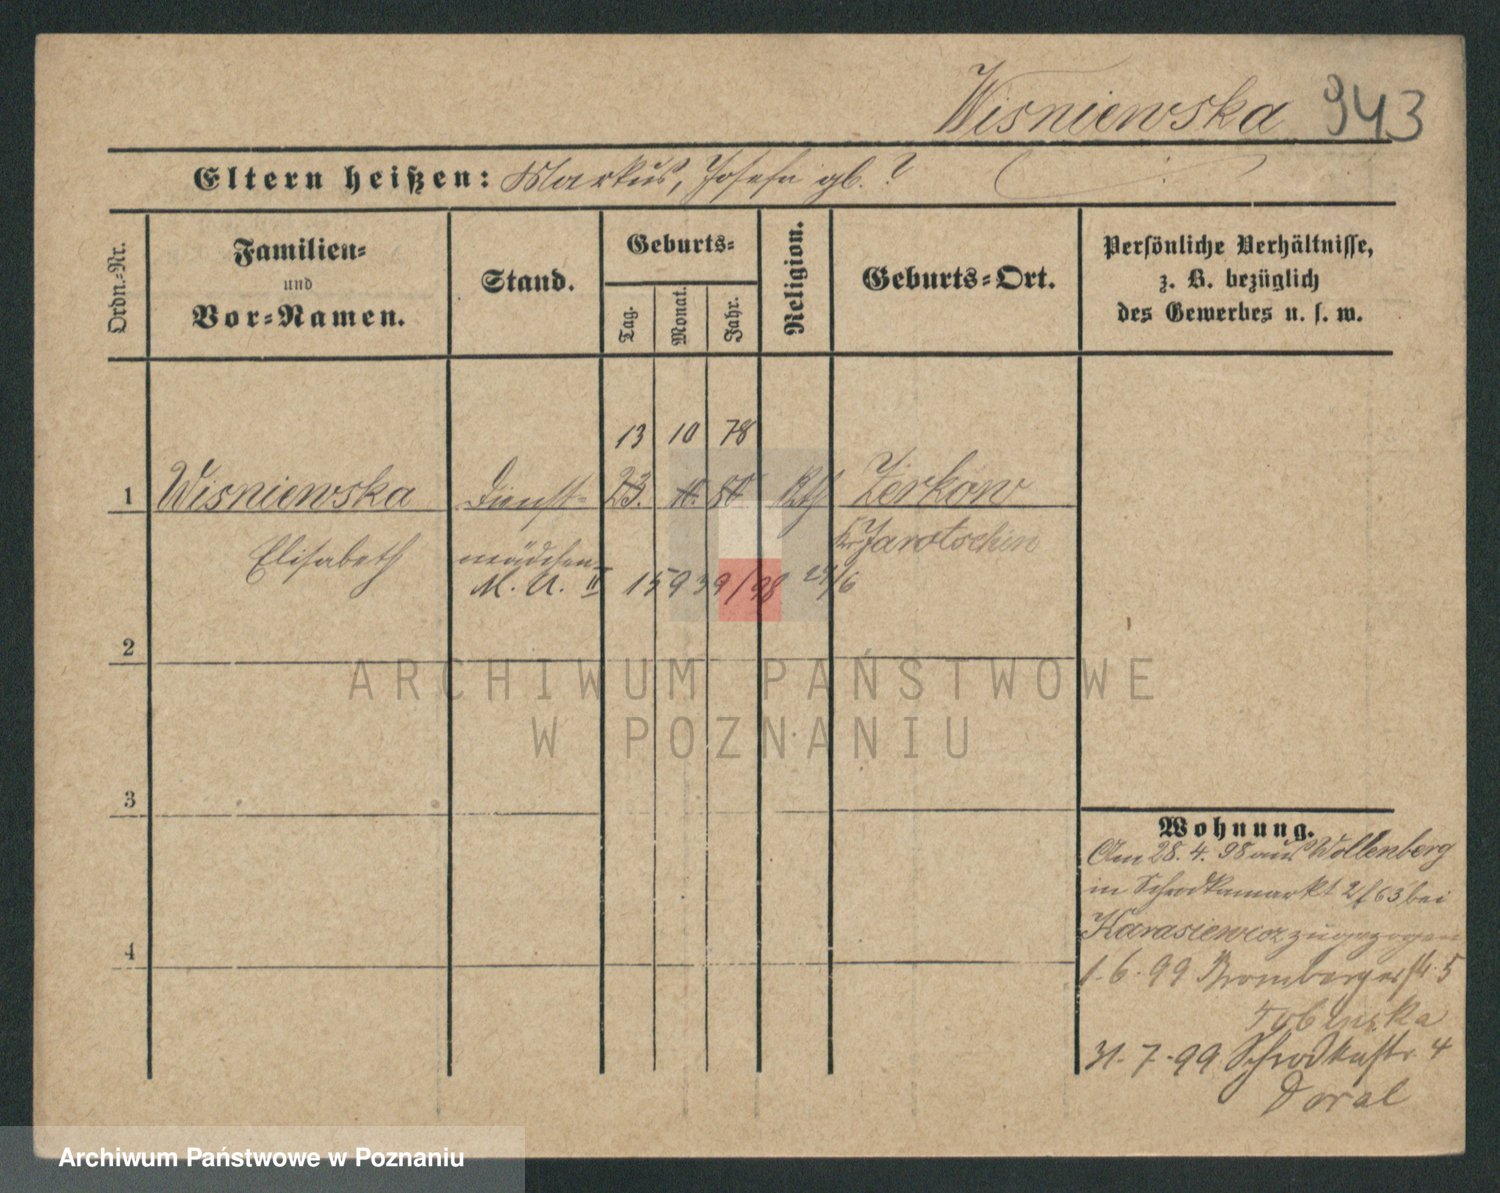 Wisniewska 943
Eltern heißen: Markus, Josefa gb. ?
Ordn.-Nr.
Familien-
und
Vor-Namen.
Stand.
Geburts-
Tag.
Monat.
Jahr.
Religion.
Geburts-Ort.
Persönliche Verhältnisse,
z. B. bezüglich
des Gewerbes u. s. w.
13 10 78
1 Wisniewska Dienst- 23. 10. 80 Kth Zerkow
Elisabeth mädchen Kr. Jarotschin
M. A. II 15939/98 24/6
2
3
4
Wohnung.
Am 28. 4. 98 aus Wollenberg
in Schrodkamarkt 2/63 bei
Karasiewicz zugezogen
1.6.99 Brombergerstr. 5
31.7.99 Schrodkastr. 4
Doral
ARCHIWUM PAŃSTWOWE
W POZNANIU
Archiwum Państwowe w Poznaniu